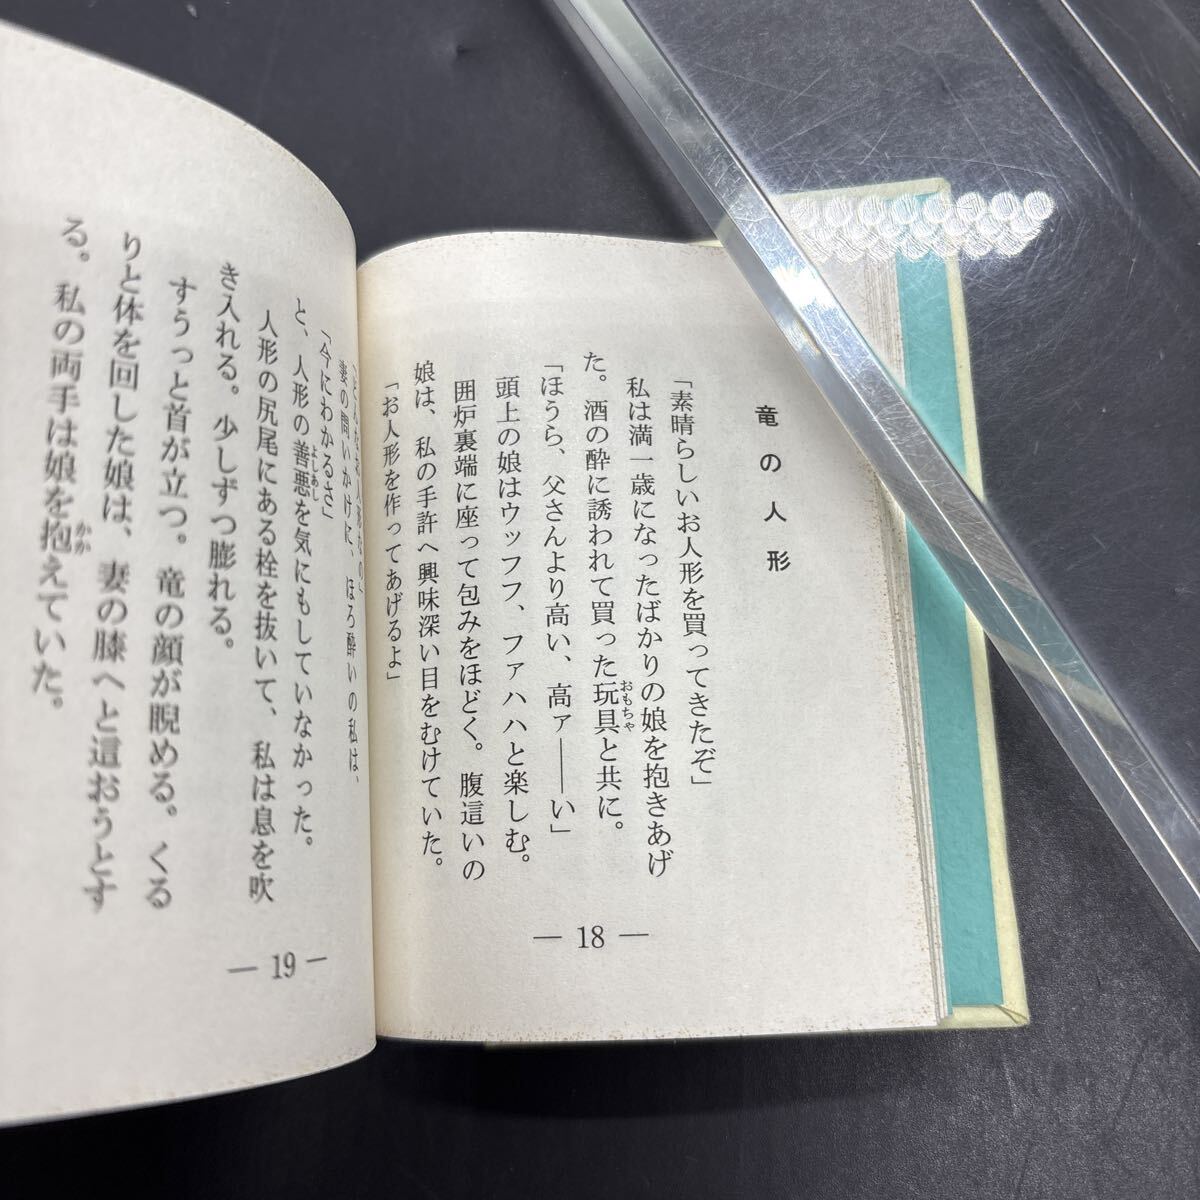 竜の人形
「素晴らしいお人形を買ってきたぞ」
私は満一歳になったばかりの娘を抱きあげ
た。酒の酔に誘われて買った玩具と共に。
おもちゃ
「ほうら、父さんより高い、高ァ――い」
頭上の娘はウッフフ、ファハハと楽しむ。
囲炉裏端に座って包みをほどく。腹這いの
娘は、私の手許へ興味深い目をむけていた。
「お人形を作ってあげるよ」
— 18 —
「どんなお人形なの」
妻の問いかけに、ほろ酔いの私は、
「今にわかるさ」
と、人形の善悪を気にもしていなかった。
よしあし
人形の尻尾にある栓を抜いて、私は息を吹
き入れる。少しずつ膨れる。
すうっと首が立つ。竜の顔が睨める。くる
りと体を回した娘は、妻の膝へと這おうとす
る。私の両手は娘を抱えていた。
かか
— 19 —